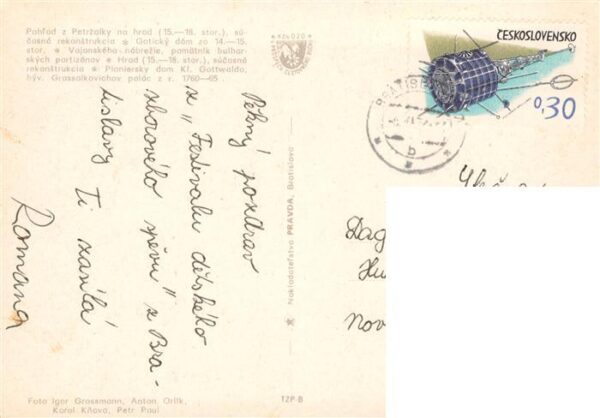 Pohľad z Petržalky na hrad (15.—18. stor.), sú-
časná rekonštrukcia ★ Gotický dóm zo 14.—15.
stor. ★ Vajanského nábrežie, pamätník bulhar-
ských partizánov ★ Hrad (15.—18. stor.), súčasná
rekonštrukcia ★ Pioniersky dom Kl. Gottwalda,
býv. Grassalkovichov palác z r. 1760—65
ČESKOSLOVENSKO
0,30
b
Pekný pozdrav
z „Festivalu dětského
sborového zpěvu" z Bra-
tislavy Ti zasílá
Romana
★ Nakladateľstvo PRAVDA, Bratislava
Dag
Nov
Foto Igor Grossmann, Anton Orlík,
Karol Kňava, Petr Paul
TZP-B